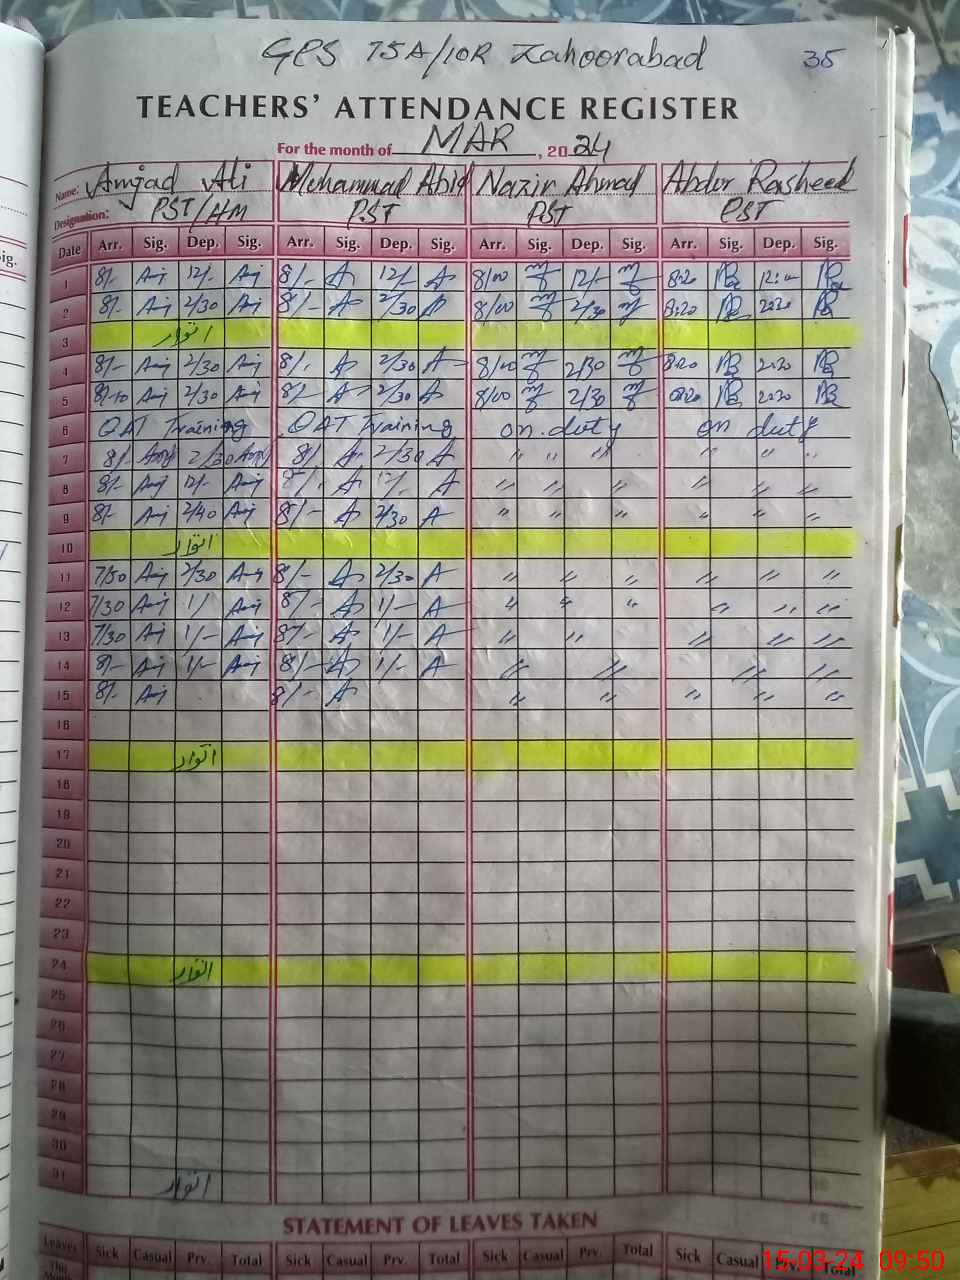 GPS 75A/10R Zahoorabad 35
TEACHERS' ATTENDANCE REGISTER
For the month of MAR, 2024
Name: Amjad Ali Muhammad Abid Nazir Ahmad Abdur Rasheed
Designation: PST/HM PST PST PST
Date Arr. Sig. Dep. Sig. Arr. Sig. Dep. Sig. Arr. Sig. Dep. Sig. Arr. Sig. Dep. Sig.
1 8/- Amj 12/- Amj 8/- A 12/- A 8/00 12/- 8:20
2 8/- Amj 2/30 Amj 8/- A 2/30 A 8/00 2/30 8:20
3 اتوار
4 8/- Amj 2/30 Amj 8/- A 2/30 A 8/00 2/30 8:20
5 8/10 Amj 2/30 Amj 8/- A 2/30 A 8/00 2/30 8:20
6 QAT Training QAT Training on duty on duty
7 8/- Amj 2/30 Amj 8/- A 2/30 A " " " " " "
8 8/- Amj 12/- Amj 8/- A 12/- A " " " " " "
9 8/- Amj 2/40 Amj 8/- A 2/30 A " " " " " "
10 اتوار
11 7/50 Amj 2/30 Amj 8/- A 2/30 A " " " " " "
12 7/30 Amj 1/ Amj 8/- A 1/- A " " " " " "
13 7/30 Amj 1/- Amj 8/- A 1/- A " " " " "
14 8/- Amj 1/- Amj 8/- A 1/- A " " " "
15 8/- Amj 8/- A " " " " "
16
17 اتوار
18
19
20
21
22
23
24 اتوار
25
26
27
28
29
30
31 اتوار
STATEMENT OF LEAVES TAKEN
Leaves Sick Casual Prv. Total Sick Casual Prv. Total Sick Casual Prv. Total Sick Casual Prv. Total
This
15-03-24 09:50